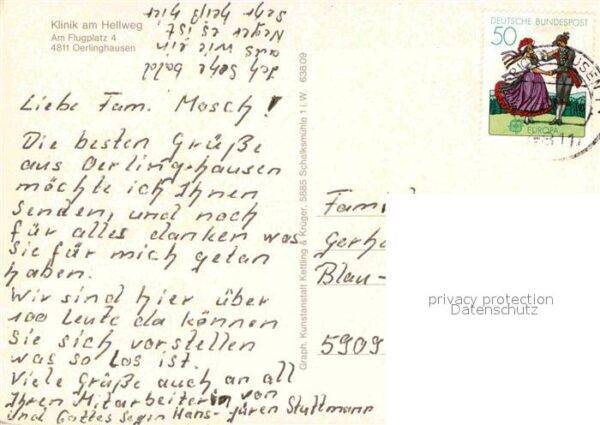 Klinik am Hellweg
Am Flugplatz 4
4811 Oerlinghausen
Ich sehe bald
aus wie ein
Neger es ist
sehr heiß hier
DEUTSCHE BUNDESPOST
50
EUROPA
Liebe Fam. Mosch!
Die besten Grüße
aus Oerling-hausen
möchte ich Ihnen
senden, und noch
für alles danken was
Sie für mich getan
haben.
Wir sind hier über
100 Leute da können
Sie sich vorstellen
was so los ist.
Viele Grüße auch an all
Ihren Mitarbeiterin von
Und Gottes Segen Hans-Jüren Stuttmann
Graph. Kunstanstalt Kettling & Krüger, 5885 Schalksmühle 1 i.W. 63809
Fam
Gerha
Blau-
5909
privacy protection
Datenschutz